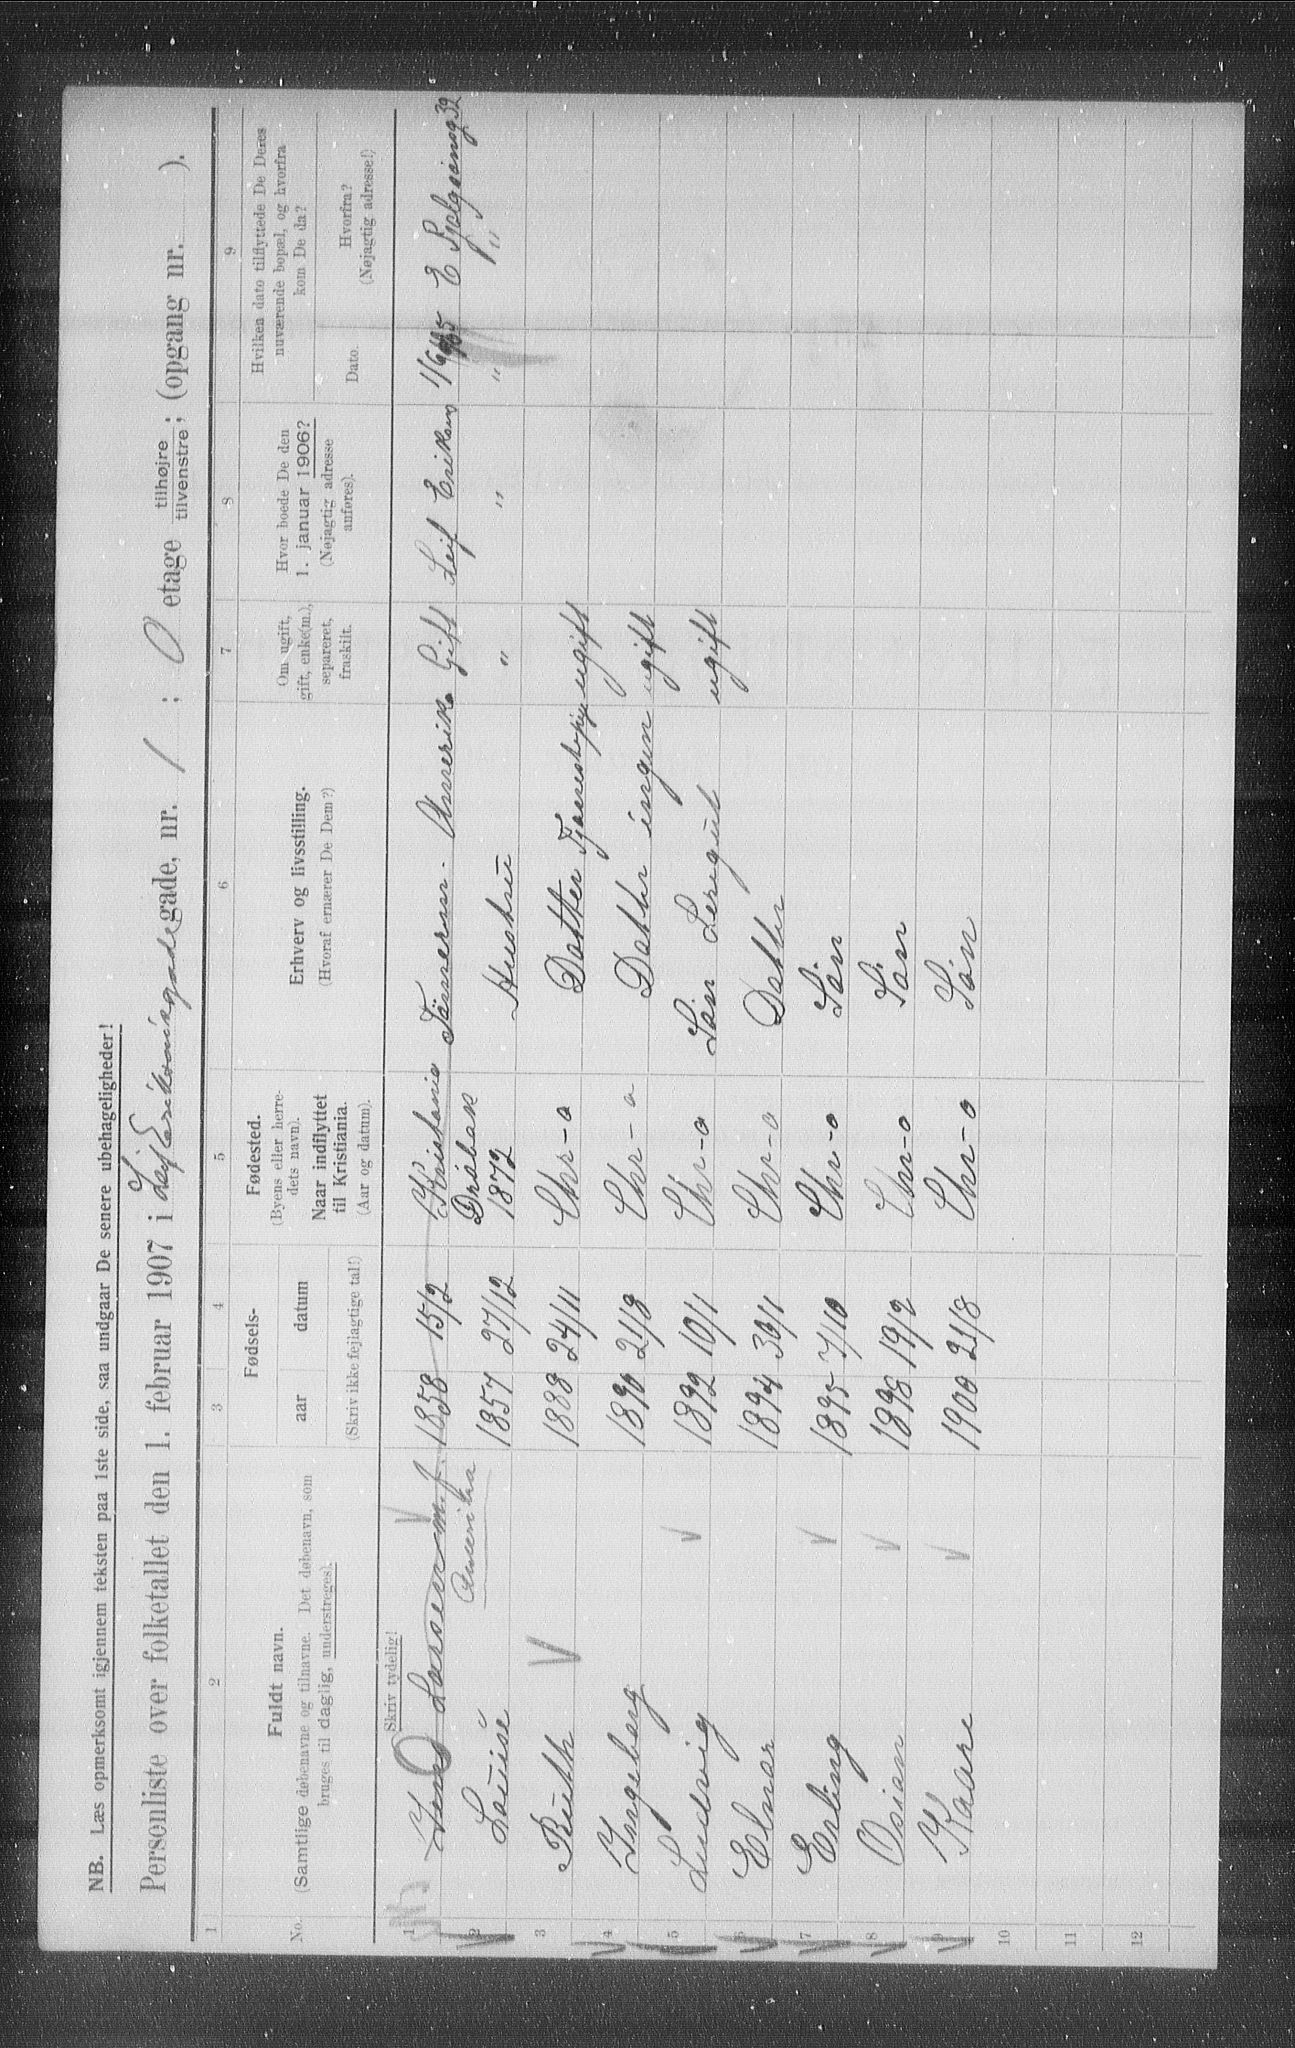 NB. Læs opmerksomt igjennem teksten paa 1ste side, saa undgaar De senere ubehageligheder!
Personliste over folketallet den 1. februar 1907 i Leif Eriksønsgade gade, nr. 1 : 0 etage tilhøjre tilvenstre; (opgang nr. ).
1 2 3 4 5 6 7 8 9
No.
Fuldt navn.
(Samtlige døbenavne og tilnavne. Det døbenavn, som
bruges til daglig, understreges).
Fødsels-
aar datum
(Skriv ikke fejlagtige tal!)
Fødested.
(Byens eller herre-
dets navn).
Naar indflyttet
til Kristiania.
(Aar og datum).
Erhverv og livsstilling.
(Hvoraf ernærer De Dem?)
Om ugift,
gift, enke(m.),
separeret,
fraskilt.
Hvor boede De den
1. januar 1906?
(Nøjagtig adresse
anføres).
Hvilken dato tilflyttede De Deres
nuværende bopæl, og hvorfra
kom De da?
Dato.
Hvorfra?
(Nøjagtig adresse!)
Skriv tydelig!
1 Larsen m. f. 1858 15/2 Kristania Amerika Gift Leif Eriksøns E
Amerika
2 Louise 1857 27/12 Drøbak 1872 Hustru " " " "
3 Ruth 1888 24/11 Chr-a Datter ugift
4 Ingeborg 1890 21/8 Chr-a Datter ingen ugift
5 Ludvig 1892 10/1 Chr-a Søn ugift
6 Elnar 1894 30/1 Chr-a Datter
7 Erling 1895 7/10 Chr-a Søn
8 Osian 1898 19/2 Chr-a Søn
9 Kaare 1900 21/8 Chr-a Søn
10
11
12